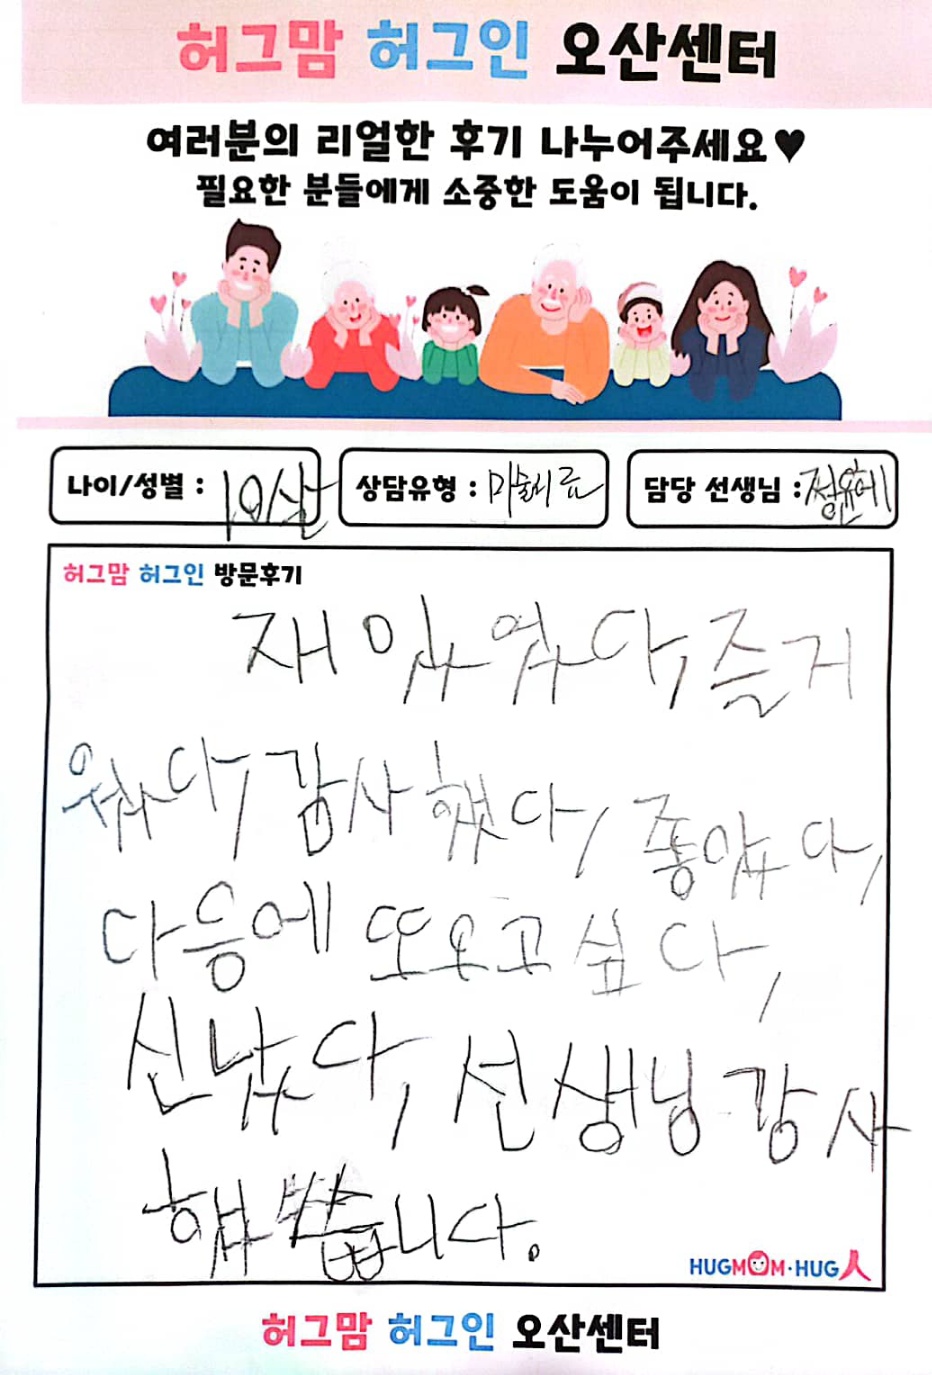 허그맘 허그인 오산센터
여러분의 리얼한 후기 나누어주세요♥
필요한 분들에게 소중한 도움이 됩니다.
나이/성별 : 10살 상담유형 : 미술치료 담당 선생님 : 정윤혜
허그맘 허그인 방문후기
재있었다, 즐거
웠다, 감사했다, 좋았다,
다음에 또 오고 싶다,
신났다, 선생님 감사
했씁니다.
HUGMOM·HUG人
허그맘 허그인 오산센터